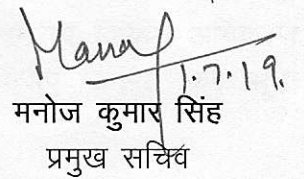 Manoj
1.7.19.
मनोज कुमार सिंह
प्रमुख सचिव